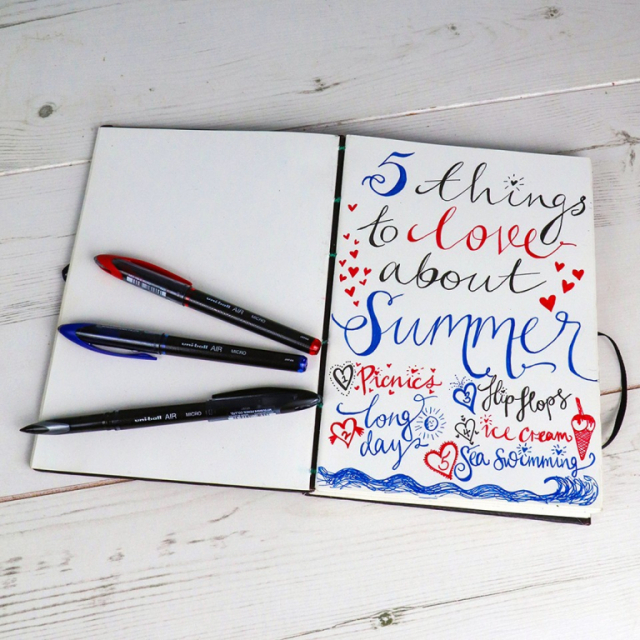 uni-ball AIR MICRO
uni-ball AIR MICRO
uni-ball AIR MICRO
5 things
to love
about
Summer
1 Picnics
2 long days
3 flip flops
4 ice cream
5 Sea Swimming